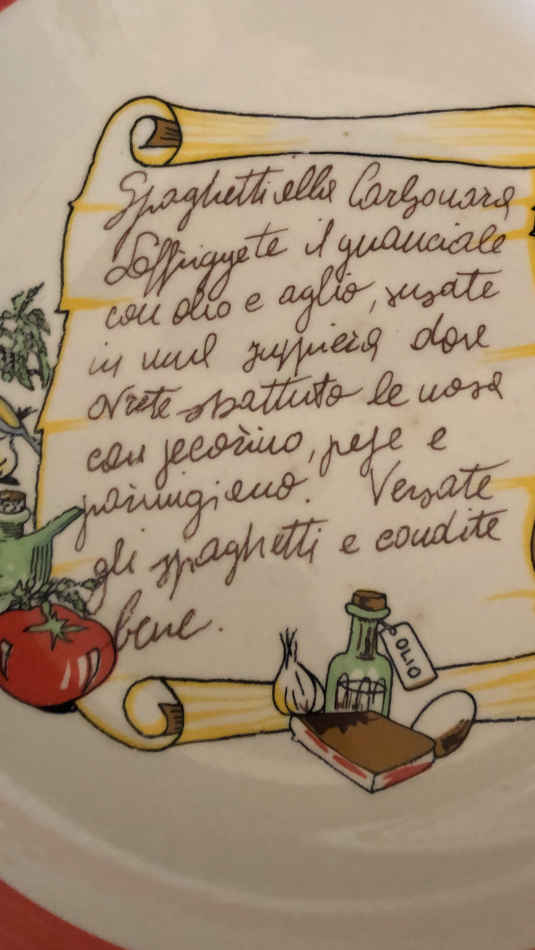 Spaghetti alla Carbonara
Soffriggete il guanciale
con olio e aglio, versate
in una zuppiera dove
avrete sbattuto le uova
con pecorino, pepe e
parmigiano. Versate
gli spaghetti e condite
bene.
OLIO